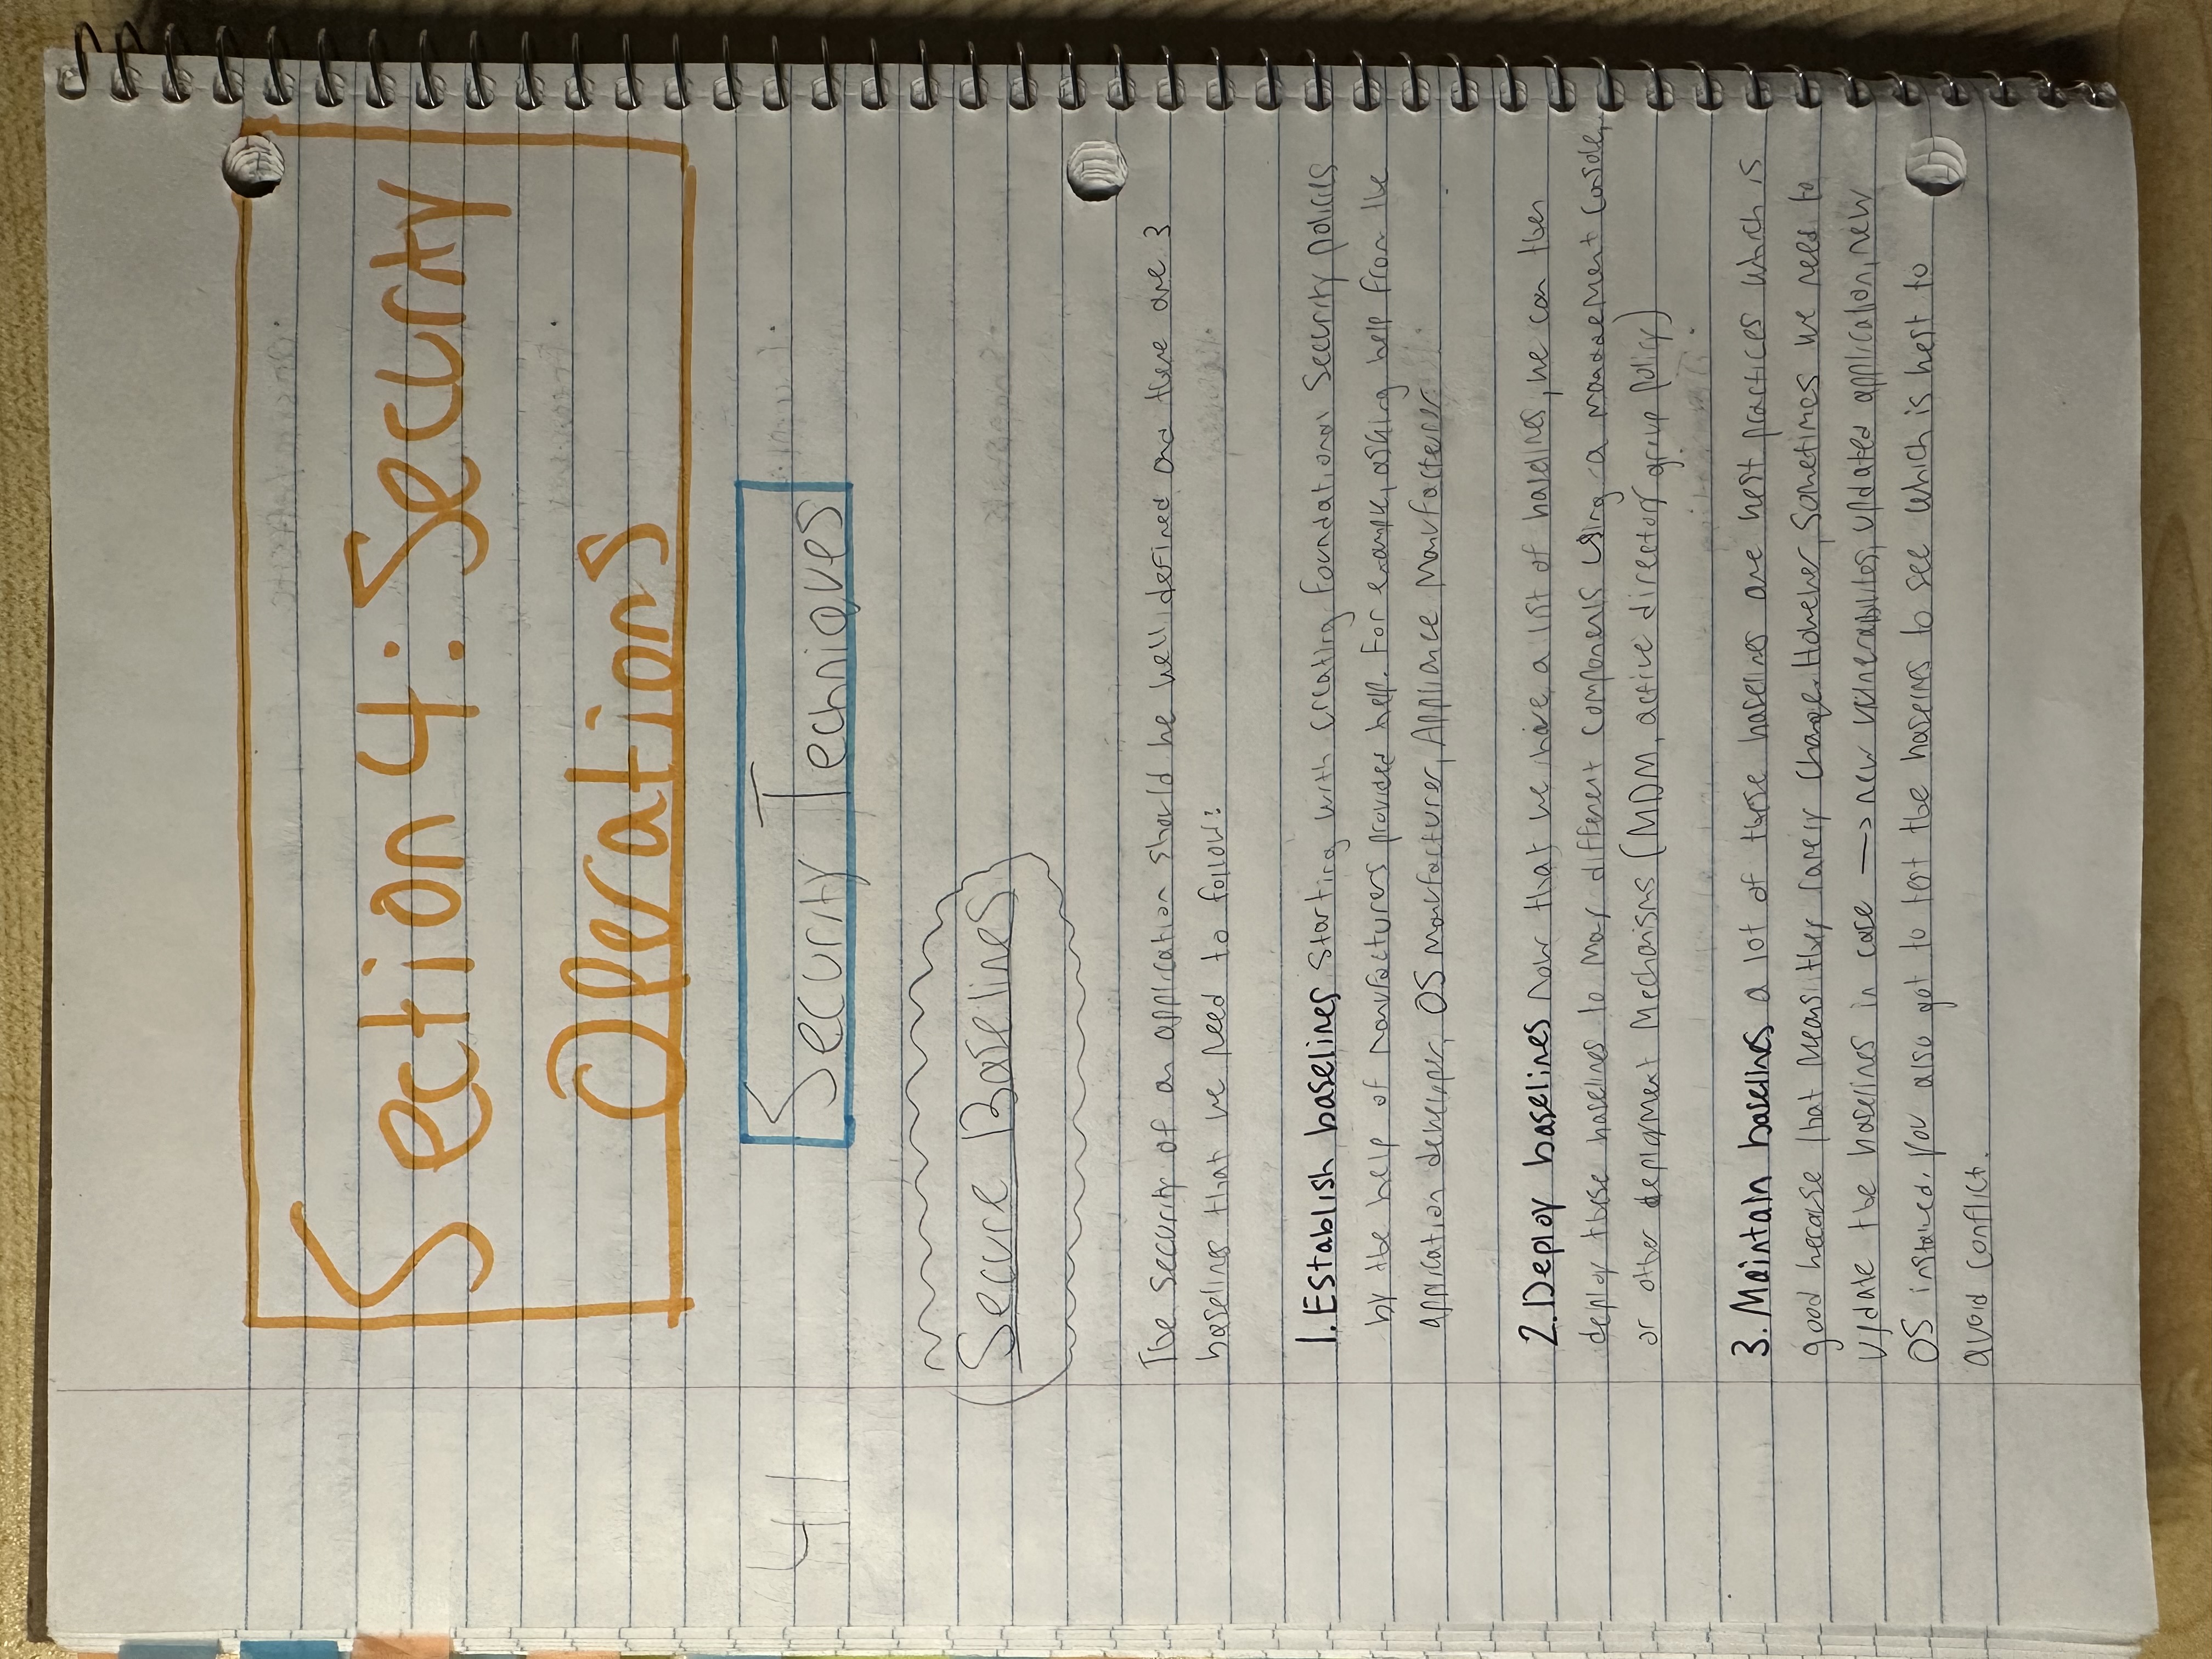 Section 4: Security
Operations
4.1
Security Techniques
Secure Baselines
The security of an application should be well defined and there are 3
baselines that we need to follow:
1. Establish baselines Starting with creating foundational Security policies
by the help of manufacturers provided help. For example, asking help from the
application developer, OS manufacturer, Appliance Manufacturer
2. Deploy baselines now that we have a list of baselines, we can then
deploy these baselines to many different components using a management console,
or other deployment Mechanisms (MDM, active directory group policy)
3. Maintain baselines a lot of these baselines are best practices which is
good because that means they rarely change. However, sometimes we need to
update the baselines in case —> new vulnerabilites, updated application, new
OS installed. You also got to test the baselines to see which is best to
avoid conflict.